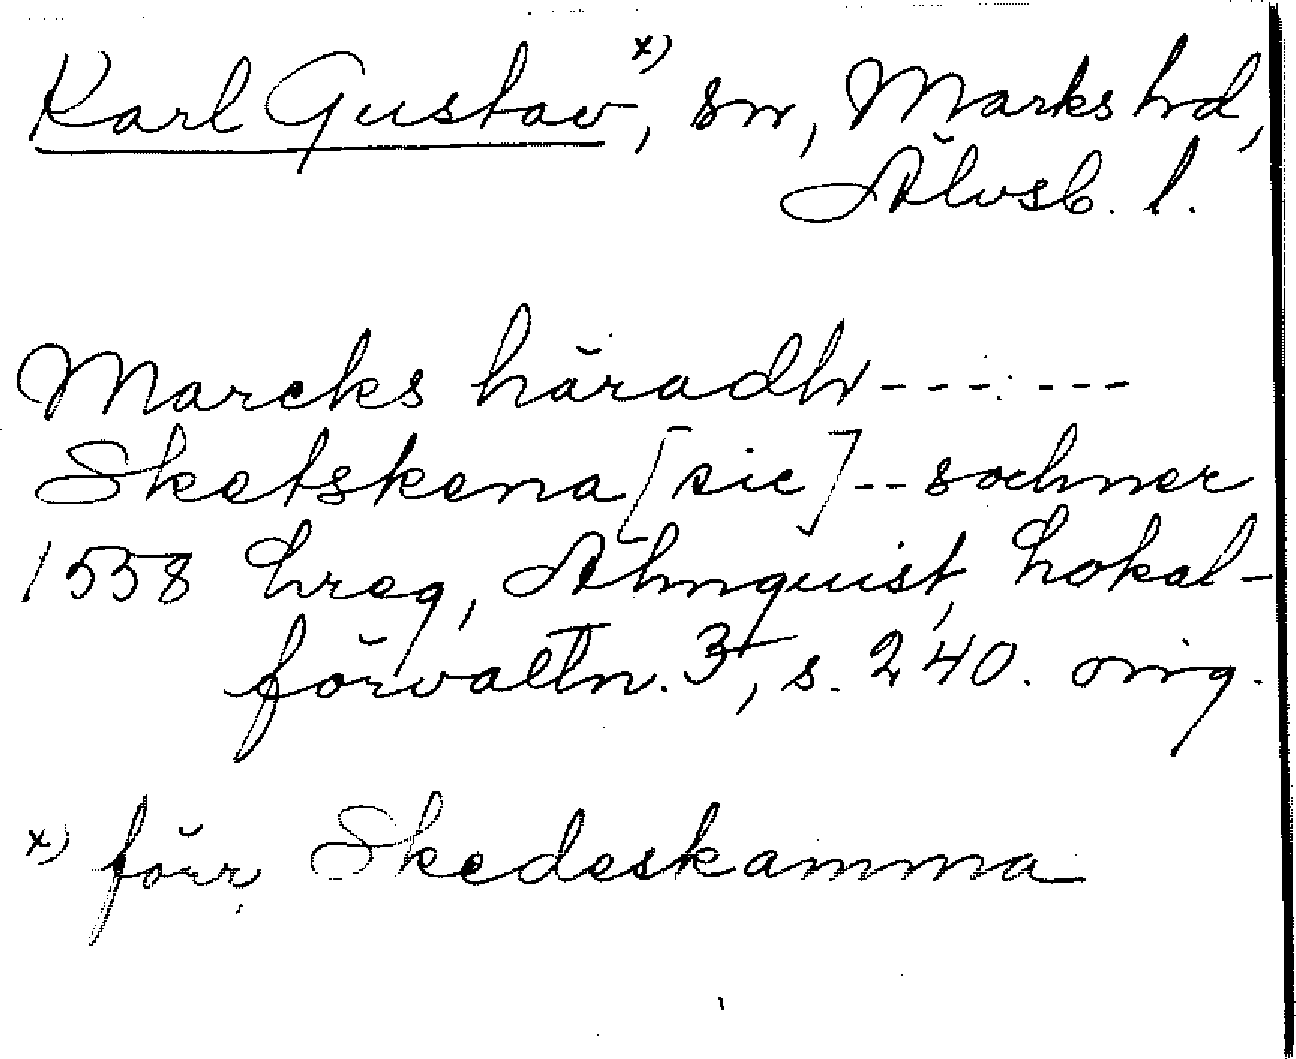 Karl Gustav x), sn, Marks hd,
Älvsb. l.
Marcks häradh --- ---
Sketskena [sic] -- sochner
1558 hreg, Almquist, Lokal-
förvaltn. 3, s. 240. orig.
x) förr Skedeskamma